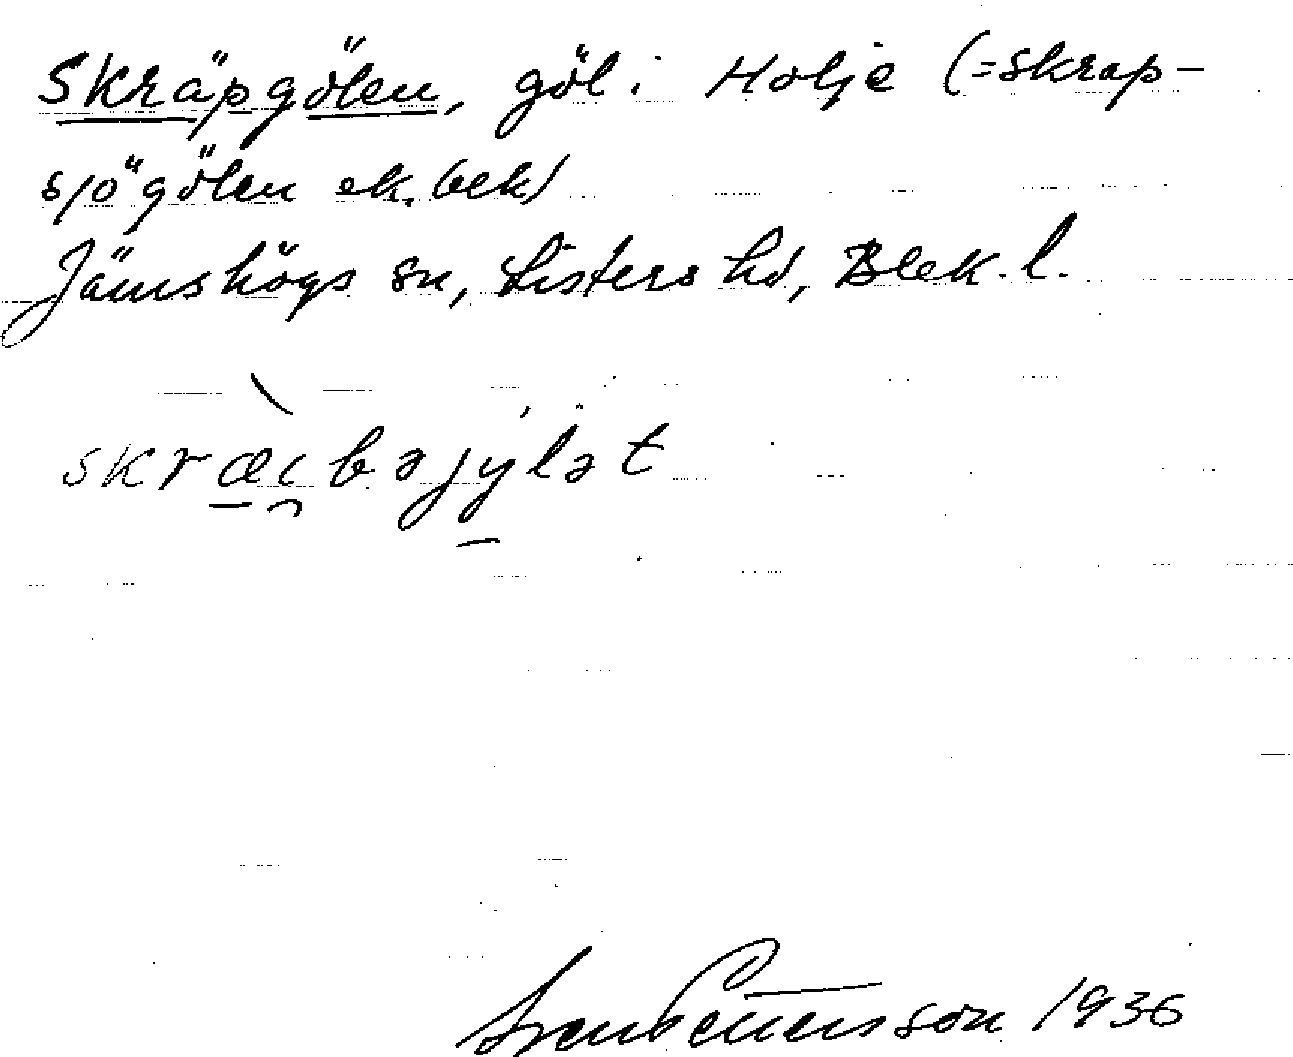 Skräpgölen, göl i Holje (=skrap-
sjögölen ek. bek)
Jämshögs sn, Listers hd, Blek. l.
skræi̯bəjylət
Sven Pettersson 1936